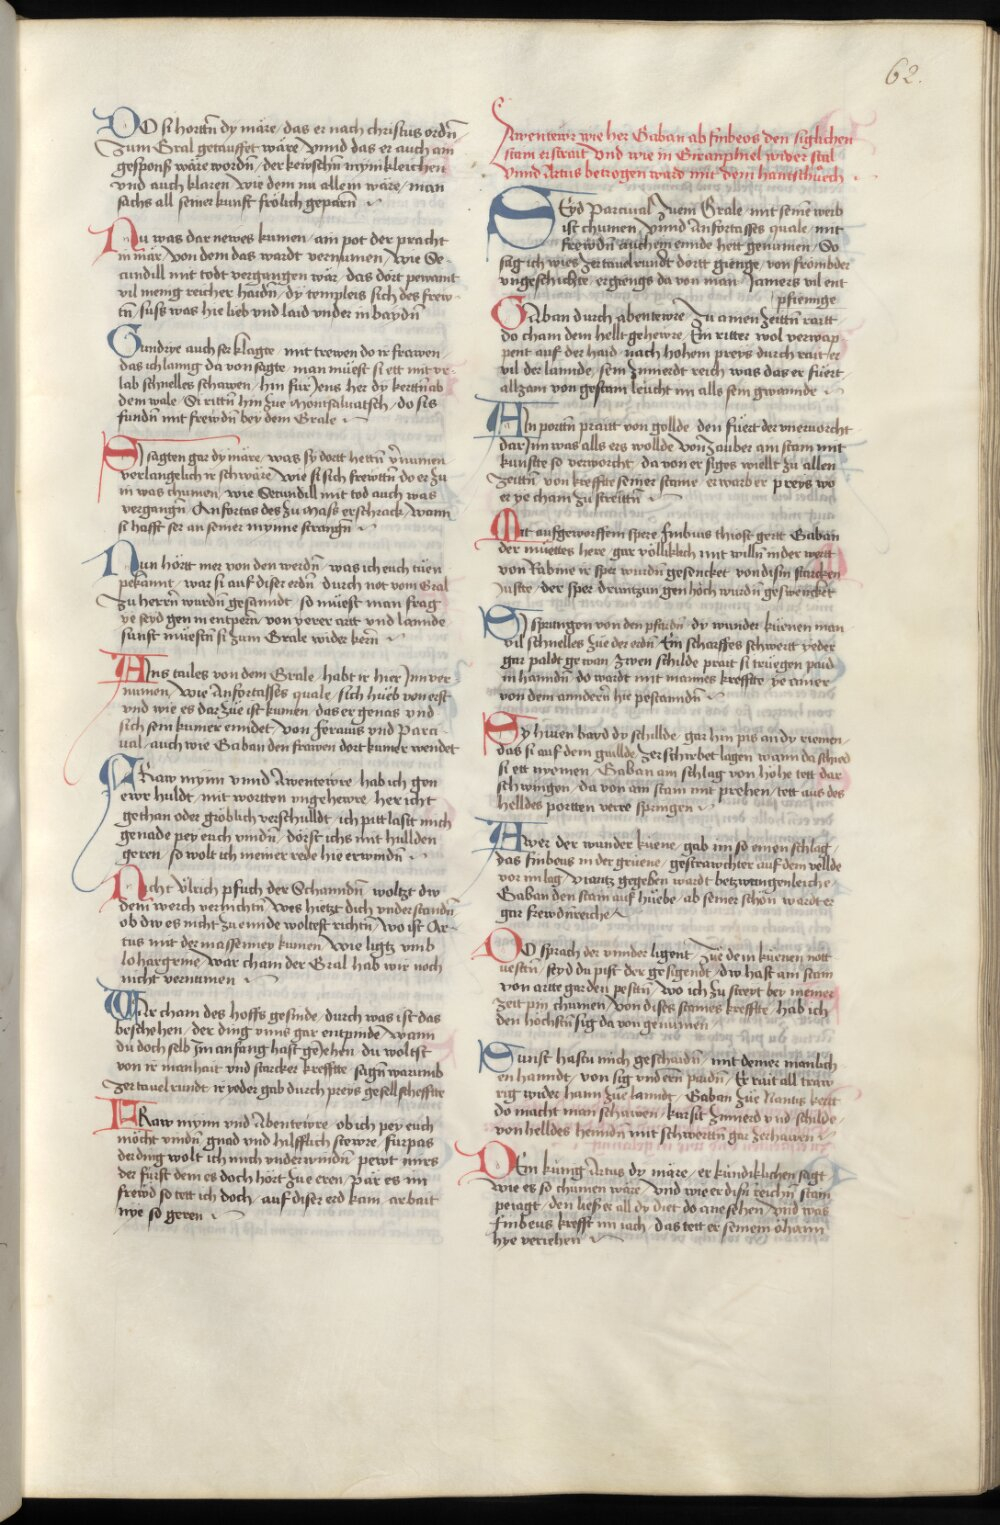 62.
DO si hortñ dy märe / das er nach christus ordñ /
zum Gral getauffet wäre / Vnnd das er auch am
gesponß wäre wordñ / der kewschñ mynikleichen
vnd auch klaren / wie dem nu allem wäre / man
sachs all seiner kunft frölich geparñ
Nu was dar newes kumen / ain pot der pracht
in mär / von dem das wardt vernumen / wie Se-
cundill mit todt vergangen wär / das dort pewaint
vil menig reicher haidñ / dy templeis sich des frew
tñ / suss was hie lieb vnd laid vnder in baydñ
Cundrye auch ser klagte / mit trewen do ir frawen /
das ich lanng da von sagte / man müest si ett mit vr-
lab schnelles schawen / hin für Jens her dy kerttñ ab
dem wale / Si rittñ hin zue Montsaluatsch / do si s
fundñ mit frewdñ bey dem Grale
SI sagten gar dy märe / was sy dortt hettñ v̈numen
verlangelich ir schwäre / wie si sich frewttñ do er zu
in was chumen / wie Secundill mit tod auch was
vergangñ / Anfortas des zu mass erschrack / wann
si hafft ser an seiner mynne strangñ
Nun hörtt mer von den werdñ / was ich euch tüen
pekannt / war si auf diser erdñ / durch not vom Gral
zu herrñ wurdñ gesanndt / so müest man frag
ye seyd gen in entperñ / von yerer artt vnd lannde /
sunst müestñ si zum Grale wider kerñ
AIns tailes von dem Grale / habt ir hier Jnn ver
numen / wie Anfortasses quale / sich hüeb von erst
vnd wie es dar zue ist kumen / das er genas vnd
sich sein kumer enndet / von feraus vnd Parci
ual / auch wie Gaban den frawen dort kumer wendet
FRaw mynn vnnd Awentewre / hab ich gen
ewr huldt / mit wortten vngehewre / her icht
gethan oder gröblich verschulldt / ich pitt lasst mich
genade pey euch vindñ / dörst ichs mit hullden
geren / so wolt ich meiner rede hie erwindñ
Nicht Vlrich pfuch der Schanndñ / woltzt dw
dein werch vernichtñ / wes hietzt dich vnderstandñ
ob dw es nicht zu ennde woltest richtñ / wo ist Ar-
tus mit der massenney kumen / wie ligtz vmb
lohargrine / war cham der Gral hab wir noch
nicht vernumen
WIr cham des hoffs gesinde / durch was ist das
beschehen / der ding vnns gar entpinde / wann
du doch selb Jm anfang hast gesehen / du woltst
von ir manhait vnd starcker kreffte / sagñ warumb
zertauelrundt ir yeder gab durch preys gesellscheffte
FRaw mynn vnd Abentewre / ob ich pey euch
möcht vindñ / gnad vnd hilfflich stewre / fürpas
der ding wolt ich mich vnderwindñ / pewt mirs
der fürst dem es doch hört zue eren / pär es im
frewd so tett ich doch / auf diser erd kain arbait
nye so geren
Awentewr wie her Gaban ab finbeos den siglichen
stain erstrait / Vnd wie in Giranphiel wider stal
Vnnd Artus betrogen ward mit dem hantschuech
SEyd Parciual zuem Grale / mit seinē weib
ist chumen / vnnd Anfortasses quale / mit
frewdñ auch ein ennde hett genumen / So
sag ich wies zertauelrundt dortt gienge / von frömbder
vngeschichte / ergiengs da von man Jamers vil ent
pfienge
GAban durch abentewre / zu ainen zeittñ raitt
do cham dem hellt gehewre / Ein ritter wol verwap
pent auf der haid / nach hohem preys durch rait er
vil der lannde / sein zimierdt reich was das er füert
allzam von gestain leucht im alls sein gwannde
AIn porttñ praitt von gollde / den füert der vneruorcht
dar Jnn was alls ers wollde / von zauber ain stain mit
kunstte so verworcht / da von er siges wiellt zu allen
zeittñ / von krefftte seiner staine / erwarb er preys wo
er ye cham zu streittñ
MIt aufgeworffem spere / finbeus thiost gertt Gaban
der müettes here / gar völliklich mit willñ in der wertt
von Rabine ir sper wurdñ gesencket / von disñ starcken
Justte / der sper drumtzun gen höch wurdñ geswencket
SI sprungen von den pferdñ / dy wunder küenen man
vil schnelles zue der erdñ / Ein scharffes schwertt yeder
gar paldt gewan / zwen schilde prait si truegen paid
in hanndñ / do wardt mit mannes kreffte / ye ainer
von dem annderñ hie pestanndñ
SY hiuen bayd dy schillde / gar hin pis an dy riemen /
das si auf dem gfillde / zerschribet lagen wann da schied
si ett nyemen / Gaban ain schlag von höhe tett dar
schwingen / da von ain stain mit prehen / tett aus des
helldes portten verre springen
AWer der wunder küene / gab im so einen schlag /
das finbeus in der grüene / gestrawchter auf dem vellde
vor im lag / Viantz gegeben wardt betzwungenleiche
Gaban den stain auf hüebe / ab seiner schön wardt er
gar frewdnreiche
DO sprach der vnnder ligent / zue dem küenen nott
uesttñ / seyd du pist der gesigendt / dw hast ain stain
von artte garden pesttñ / wo ich zu streyt bey meiner
zeit pin chumen / von dises staines krefftte / hab ich
den höchstñ sig da von genumen
SUnst hastu mich geschaidñ / mit deiner manlich-
en hanndt / von sig vnd erñ paidñ / Er rait all traw
rig wider hann zue lanndt / Gaban zue Nantis kertt
do macht man schawen / kursit zimierd vnd schilde /
von helldes henndñ mit schwerttñ gar zerhawen
DEm künig Artus dy märe / er kündiklichen sagt
wie es so chumen wäre / vnd wie er disñ reichñ stain
peiagt / den liess er all dy diet do anesehen / vnd was
finbeus krefft im iach / das tett er seinem öhaim
hye veriehen